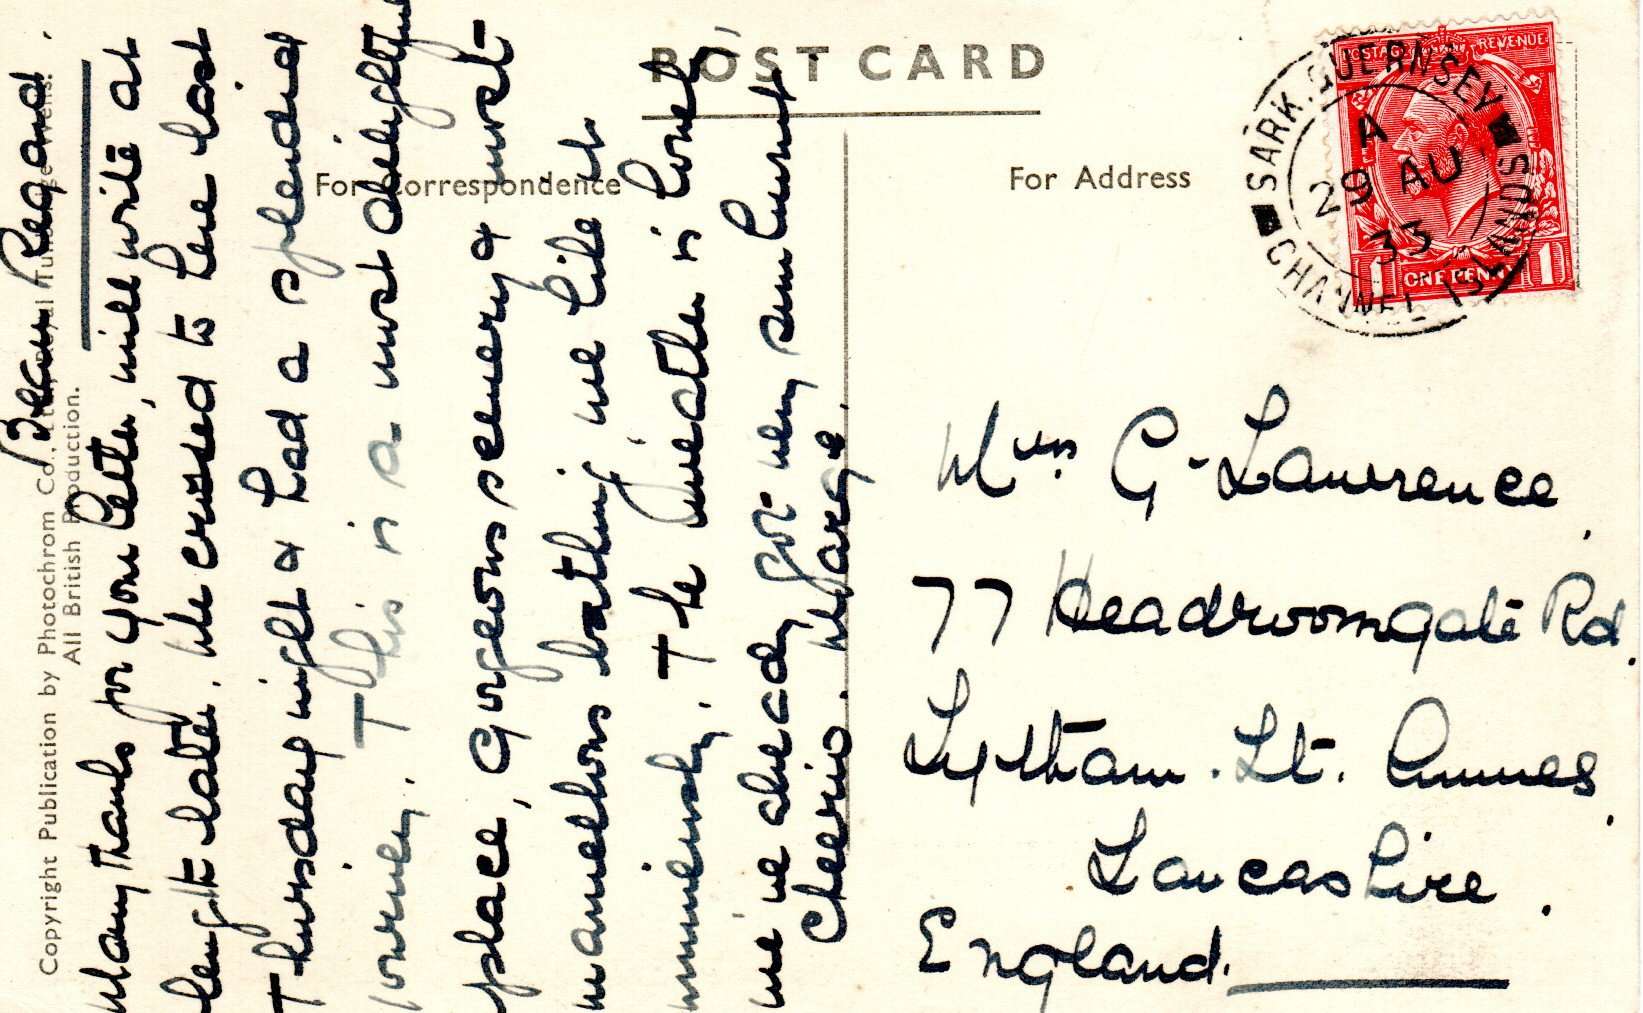 POST CARD
For Correspondence
For Address
SARK. GUERNSEY
A
29 AU
33
CHANNEL ISLANDS
POSTAGE REVENUE
1 ONE PENNY 1
Copyright Publication by Photochrom Co., Ltd., Royal Tunbridge Wells.
All British Production.
Dear Reg and
Many thanks for your letter, will write at
length later. We crossed to here last
Thursday night & had a splendid
journey. This is a most delightful
place, Gorgeous scenery & most
marvellous bathing, we like it
immensely. The weather is lovely,
we've already got very sun burnt
Cheerio. Marge.
Mrs G. Lawrence,
77 Headroomgate Rd.
Lytham. St. Annes.
Lancashire.
England.